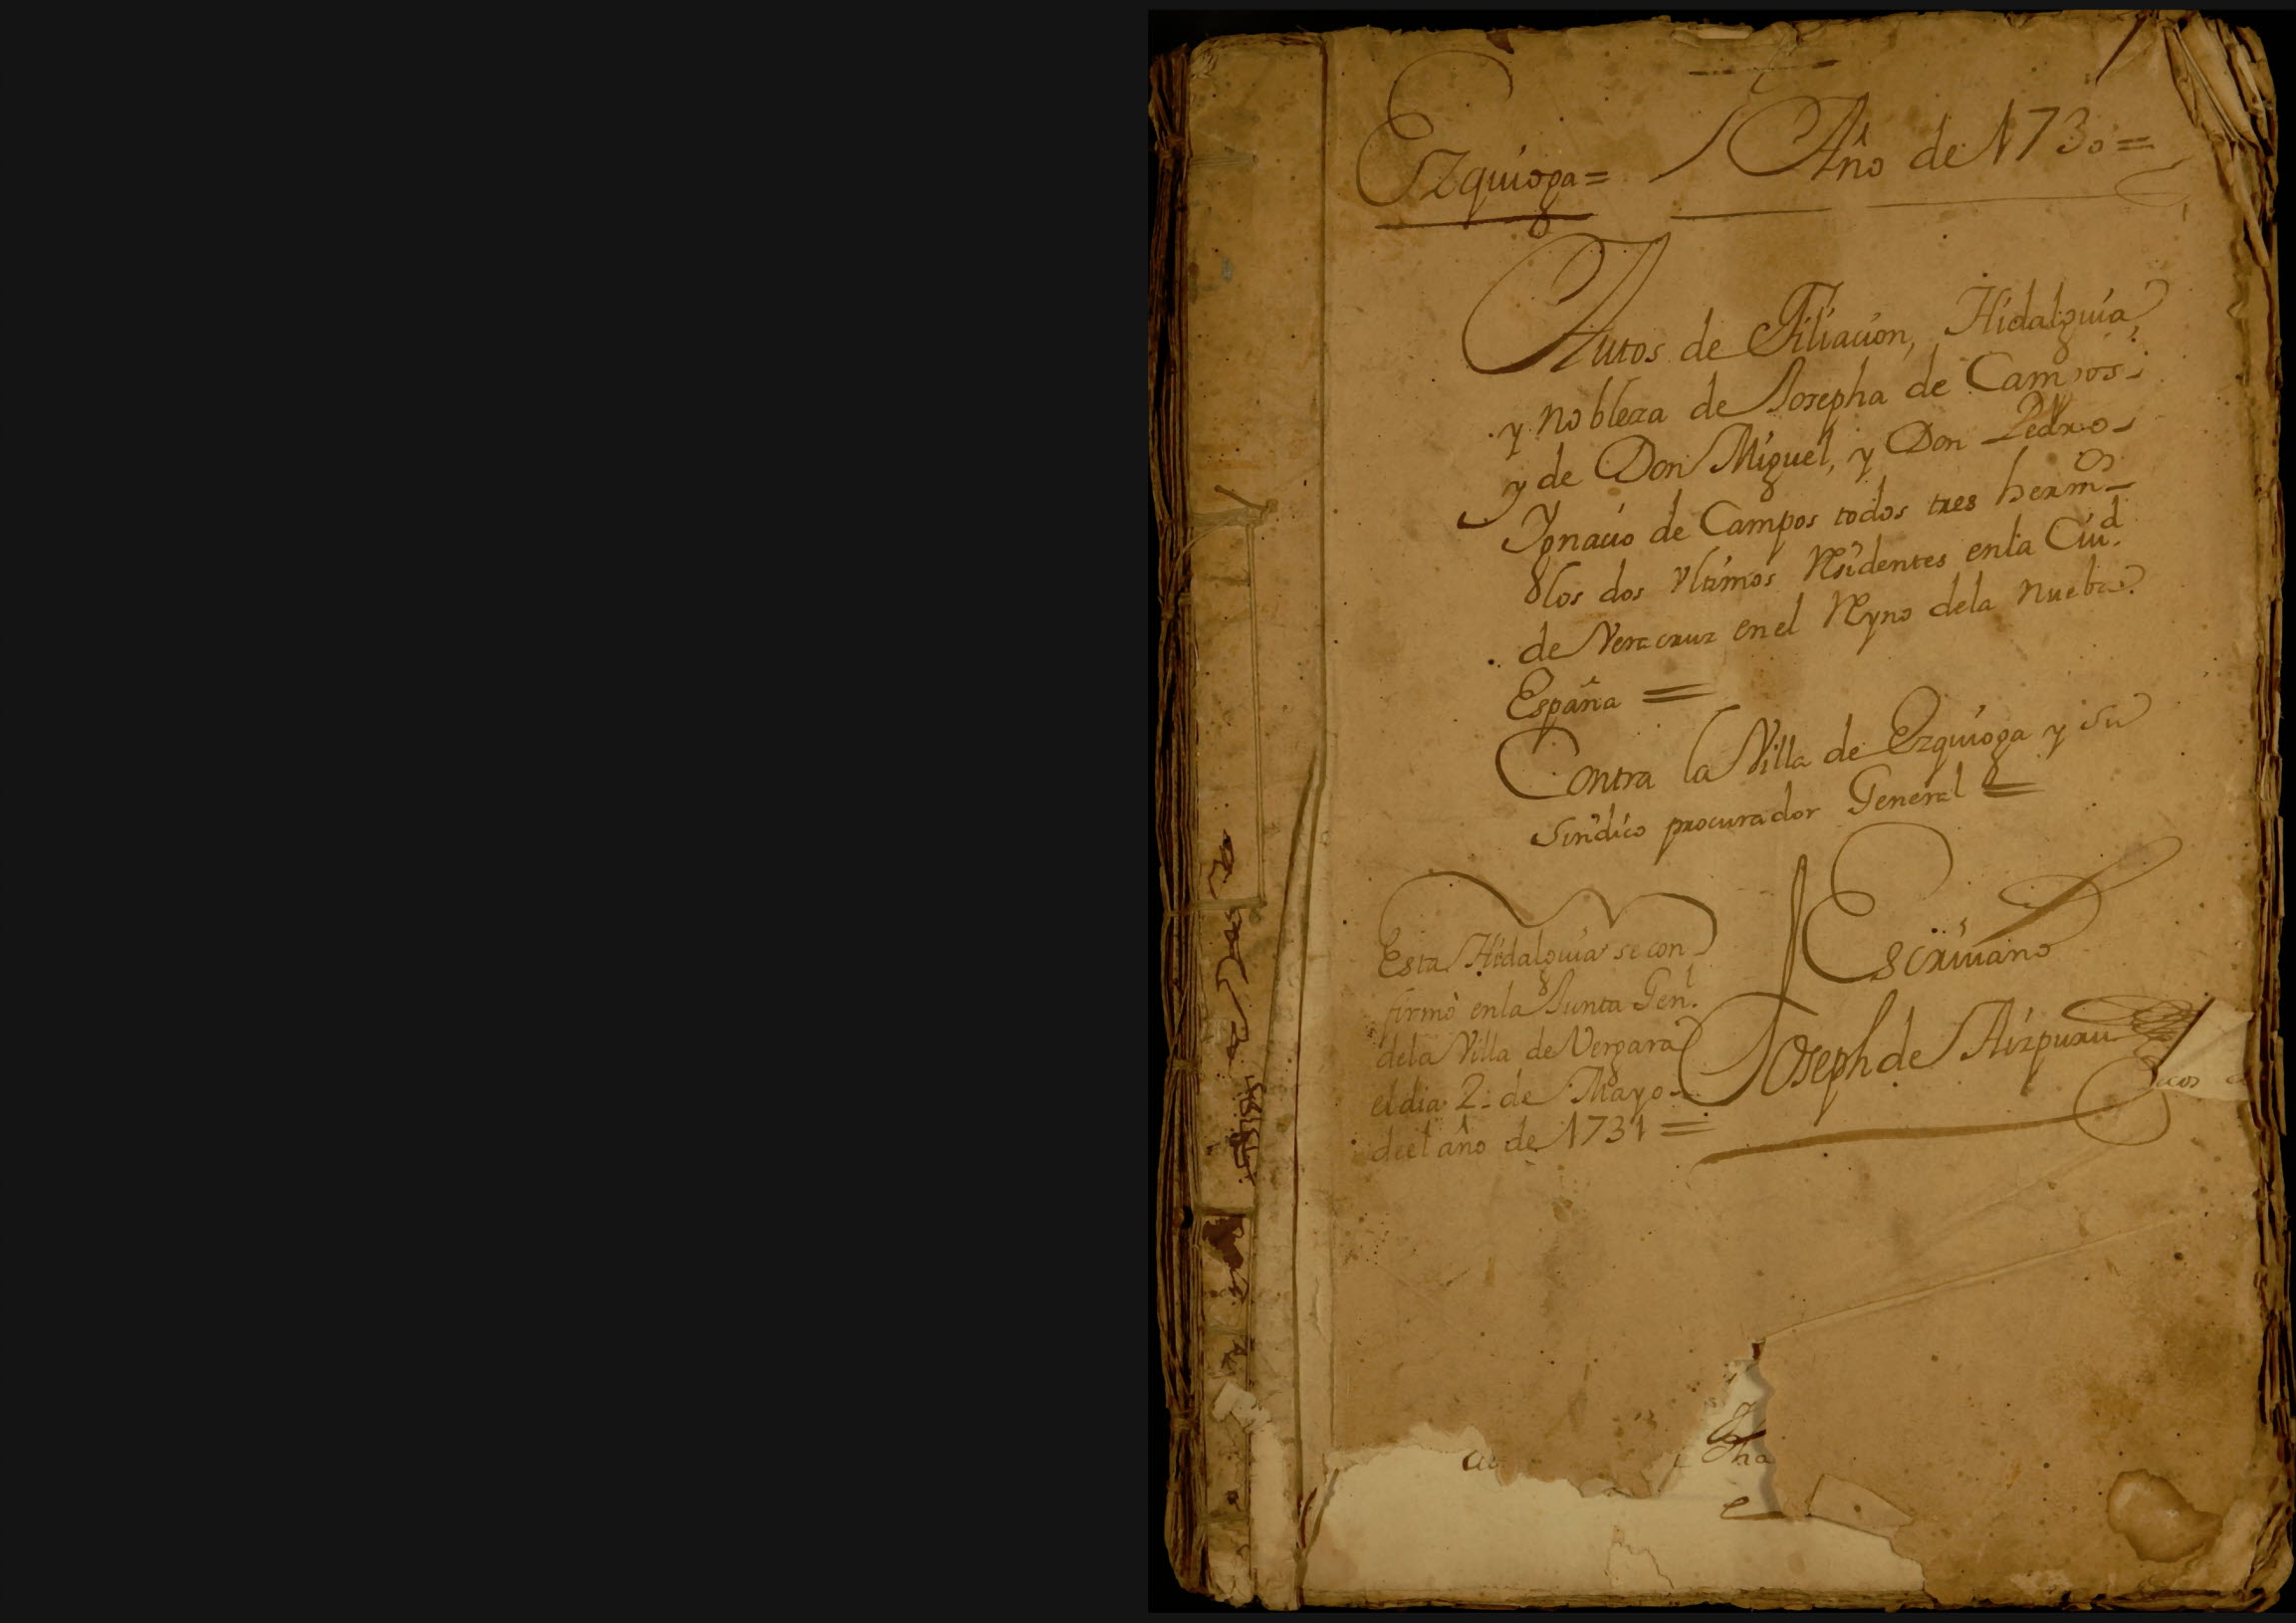 Ezquioga= Año de 1730=
Autos de Filiacion, Hidalguia
y nobleza de Josepha de Campos
y de Don Miguel, y Don Pedro
Ygnacio de Campos todos tres herm̃os
los dos Vltimos Residentes enla Ciud.
de Veracruz en el Reyno dela Nueba
España =
Contra la Villa de Ezquioga y su
Sindico procurador General =
Escriuano
Joseph de Aizpuru
Esta Hidalguia se con
firmò enla Junta Genl.
dela Villa de Vergara
el dia 2 de Mayo
de el año de 1731 =